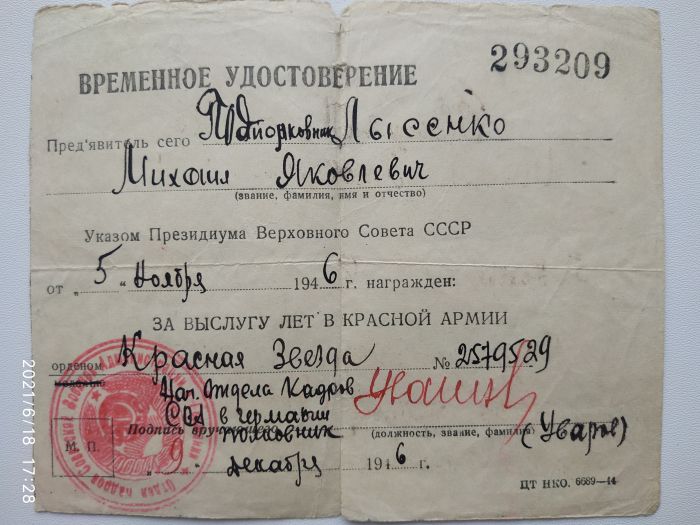 293209
ВРЕМЕННОЕ УДОСТОВЕРЕНИЕ
Пред'явитель сего Подполковник Лысенко
Михаил Яковлевич
(звание, фамилия, имя и отчество)
Указом Президиума Верховного Совета СССР
от „5“ Ноября 1946 г. награжден:
ЗА ВЫСЛУГУ ЛЕТ В КРАСНОЙ АРМИИ
орденом Красная Звезда № 2579529
медалью
Нач. Отдела Кадров
СВА в Германии
Подпись вручающего полковник (Уваров)
(должность, звание, фамилия)
М. П. „9“ декабря 1946 г.
ЦТ НКО. 6689—44
2021/6/18 17:28